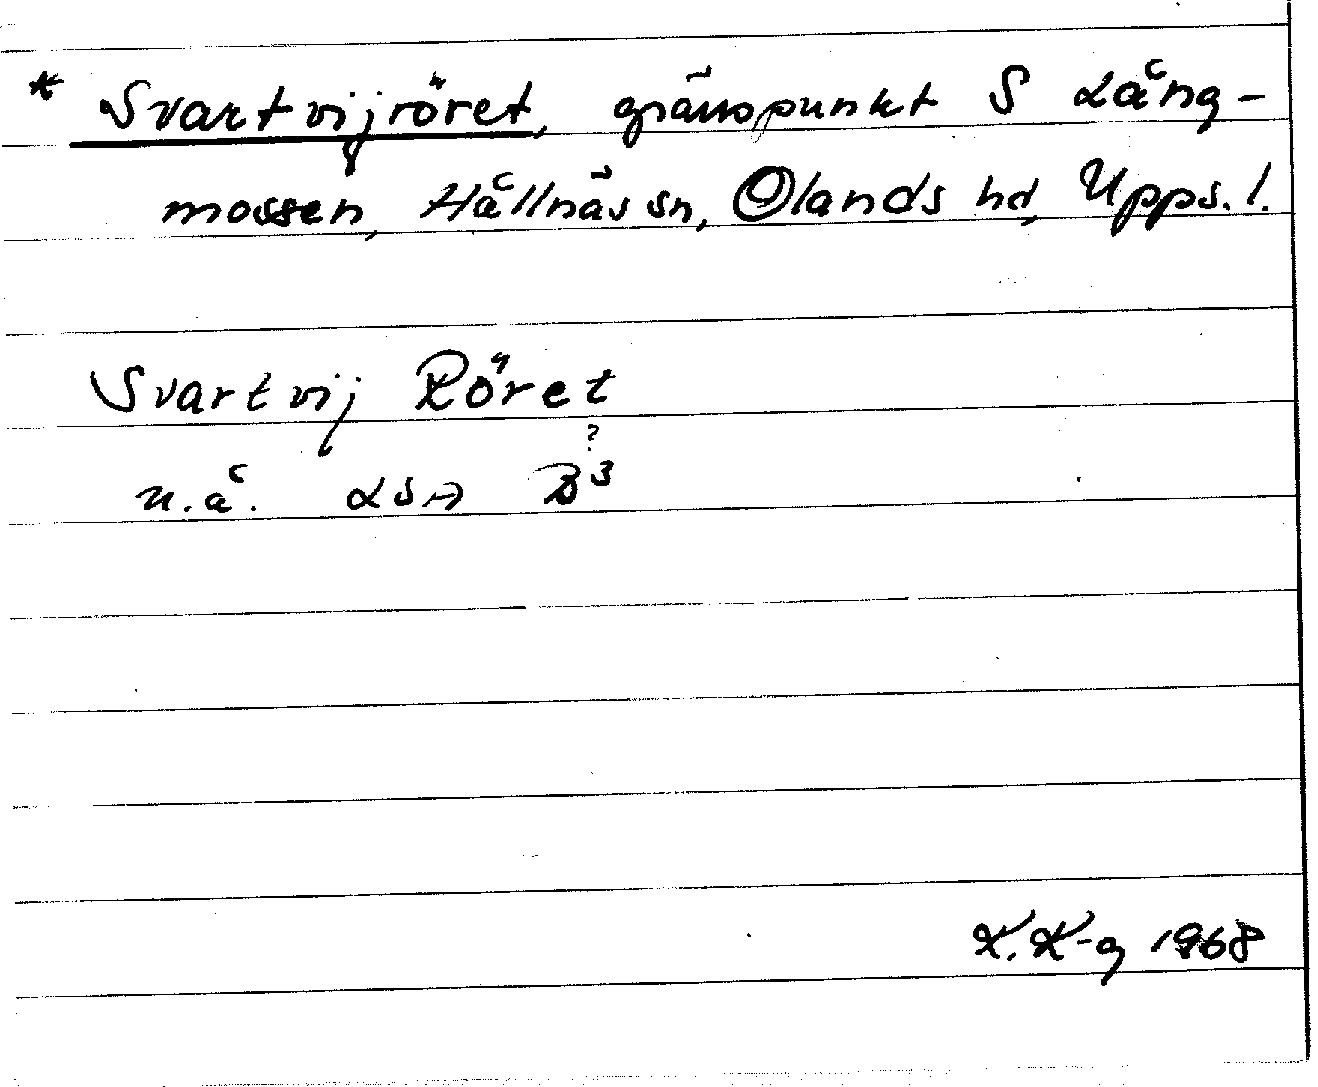 * Svartvijröret, gränspunkt S Lång-
mossen, Hållnäs sn, Olands hd, Upps. l.
Svartvij Röret
u.å. LSA B3
?
K. K-g 1968